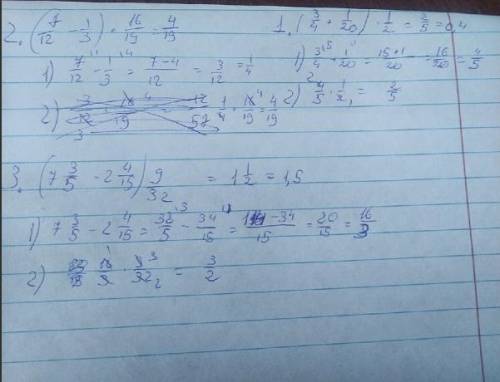 2. (7/12 - 1/3) · 16/19 = 4/19
1) 7/12 - 1/3 = 7-4/12 = 3/12 = 1/4
2) 1/4 · 16/19 = 4/19
1. (3/4 + 1/20) · 1/2 = 2/5 = 0,4
1) 3/4 + 1/20 = 15+1/20 = 16/20 = 4/5
2) 4/5 · 1/2 = 2/5
3. (7 3/5 - 2 4/15) 9/32 = 1 1/2 = 1,5
1) 7 3/5 - 2 4/15 = 38/5 - 34/15 = -34/15 = 20/15 = 16/3
2) 16/3 · 9/32 = 3/2